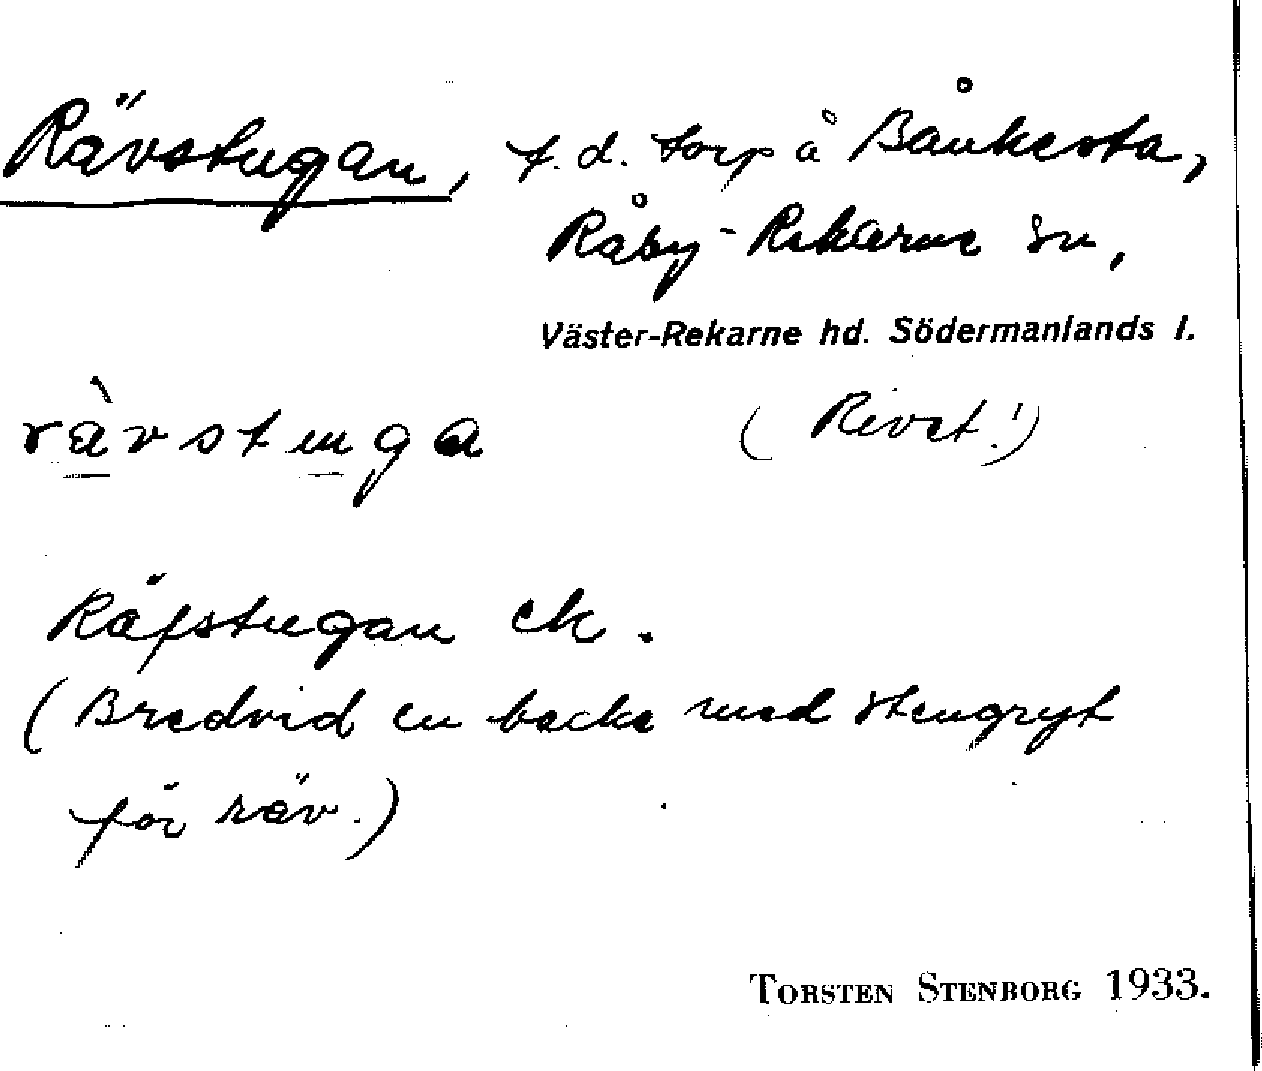 Rävstugan, f.d. torp å Bånkesta,
Råby-Rekarne sn,
Väster-Rekarne hd. Södermanlands l.
rävstuga (Rivet!)
Räfstugan ek.
(Bredvid en backe med stengryt
för räv.)
TORSTEN STENBORG 1933.